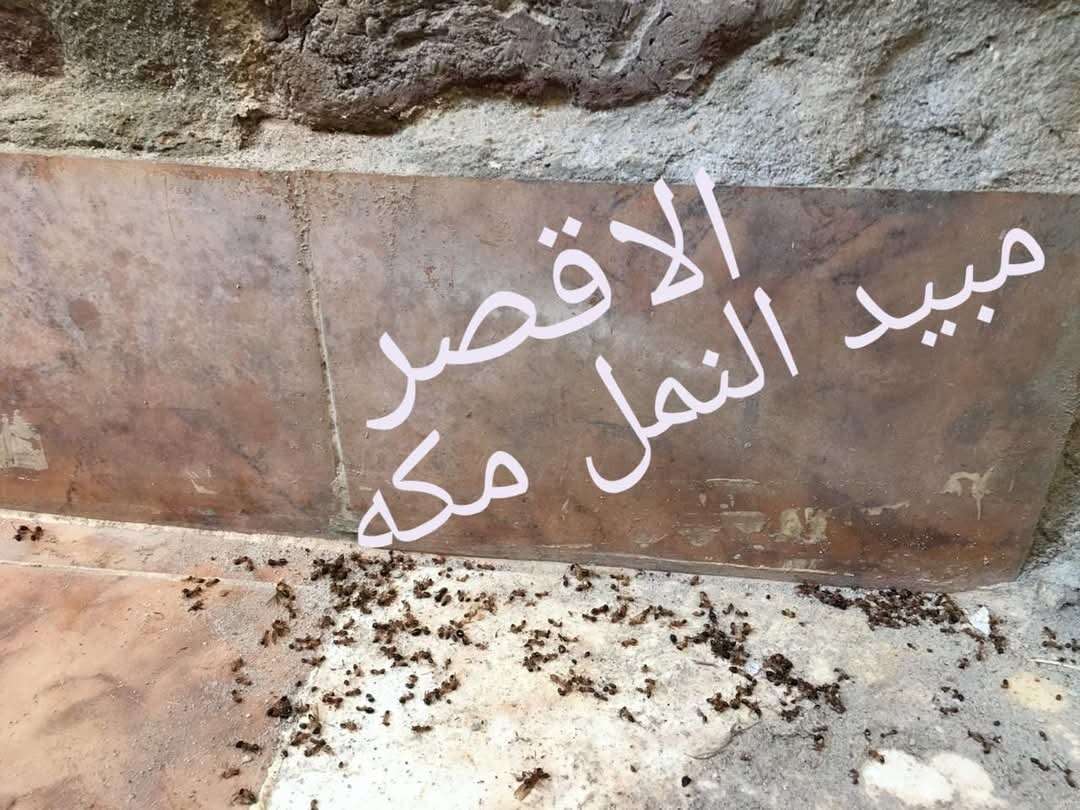 الاقصر
مبيد النمل مكه